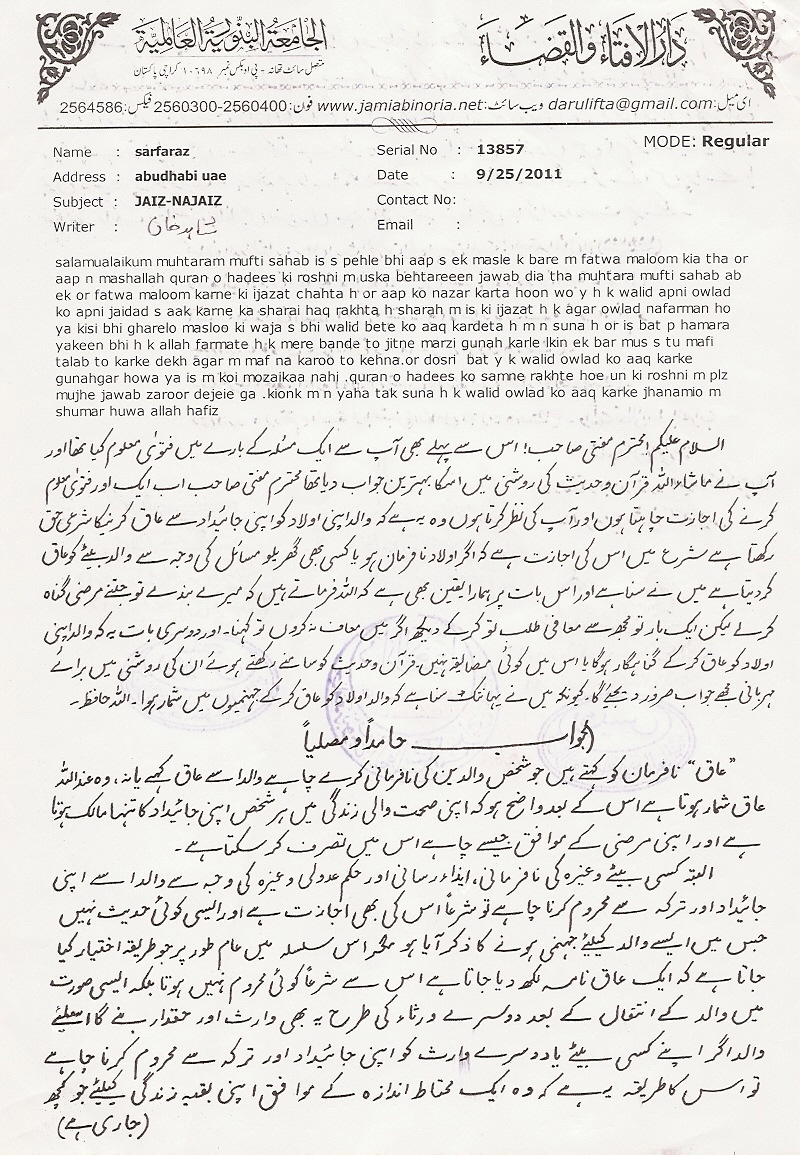 دار الافتاء والقضاء
الجامعة البنورية العالمية
متصل سائٹ تھانہ - پی او بکس نمبر ۱۰۶۹۸ کراچی پاکستان
ای میل: darulifta@gmail.com ویب سائٹ: www.jamiabinoria.net فون: 2560300-2560400 فیکس: 2564586
MODE: Regular
Name : sarfaraz Serial No : 13857
Address : abudhabi uae Date : 9/25/2011
Subject : JAIZ-NAJAIZ Contact No:
Writer : شاہد خان Email :
salamualaikum muhtaram mufti sahab is s pehle bhi aap s ek masle k bare m fatwa maloom kia tha or
aap n mashallah quran o hadees ki roshni m uska behtareeen jawab dia tha muhtara mufti sahab ab
ek or fatwa maloom karne ki ijazat chahta h or aap ko nazar karta hoon wo y h k walid apni owlad
ko apni jaidad s aak karne ka sharai haq rakhta h sharah m is ki ijazat h k agar owlad nafarman ho
ya kisi bhi gharelo masloo ki waja s bhi walid bete ko aaq kardeta h m n suna h or is bat p hamara
yakeen bhi h k allah farmate h k mere bande to jitne marzi gunah karle lkin ek bar mus s tu mafi
talab to karke dekh agar m maf na karoo to kehna.or dosri bat y k walid owlad ko aaq karke
gunahgar howa ya is m koi mozaikaa nahi .quran o hadees ko samne rakhte hoe un ki roshni m plz
mujhe jawab zaroor dejeie ga .kionk m n yaha tak suna h k walid owlad ko aaq karke jhanamio m
shumar huwa allah hafiz
السلام علیکم! محترم مفتی صاحب! اس سے پہلے بھی آپ سے ایک مسئلہ کے بارے میں فتویٰ معلوم کیا تھا اور
آپ نے ماشاء اللہ قرآن و حدیث کی روشنی میں اسکا بہترین جواب دیا تھا محترم مفتی صاحب اب ایک اور فتویٰ معلوم
کرنے کی اجازت چاہتا ہوں اور آپ کی نظر کرتا ہوں وہ یہ ہے کہ والد اپنی اولاد کو اپنی جائیداد سے عاق کرنیکا شرعی حق
رکھتا ہے شرع میں اس کی اجازت ہے کہ اگر اولاد نافرمان ہو یا کسی بھی گھریلو مسائل کی وجہ سے والد بیٹے کو عاق
کر دیتا ہے میں نے سنا ہے اور اس بات پر ہمارا یقین بھی ہے کہ اللہ فرماتے ہیں کہ میرے بندے تو جتنے مرضی گناہ
کرلے لیکن ایک بار تو مجھ سے معافی طلب تو کر کے دیکھ اگر میں معاف نہ کروں تو کہنا۔ اور دوسری بات یہ کہ والد اپنی
اولاد کو عاق کر کے گناہگار ہوگا یا اس میں کوئی مضائقہ نہیں۔ قرآن و حدیث کو سامنے رکھتے ہوئے ان کی روشنی میں برائے
مہربانی مجھے جواب ضرور دیجئے گا، کیونکہ میں نے یہانتک سنا ہے کہ والد اولاد کو عاق کر کے جہنمیوں میں شمار ہوا۔ اللہ حافظ۔
الجواب حامداً و مصلیاً
”عاق“ نافرمان کو کہتے ہیں جو شخص والدین کی نافرمانی کرے چاہے والد اسے عاق کہے یا نہ، وہ عند اللہ
عاق شمار ہوتا ہے اس کے بعد واضح ہو کہ اپنی صحت والی زندگی میں ہر شخص اپنی جائیداد کا تنہا مالک ہوتا
ہے اور اپنی مرضی کے موافق جیسے چاہے اس میں تصرف کر سکتا ہے۔
البتہ کسی بیٹے وغیرہ کی نافرمانی، ایذاء رسانی اور حکم عدولی وغیرہ کی وجہ سے والد اسے اپنی
جائیداد اور ترکہ سے محروم کرنا چاہے تو شرعاً اس کی بھی اجازت ہے اور ایسی کوئی حدیث نہیں
جس میں ایسے والد کیلئے جہنمی ہونے کا ذکر آیا ہو مگر اس سلسلہ میں عام طور پر جو طریقہ اختیار کیا
جاتا ہے کہ ایک عاق نامہ لکھ دیا جاتا ہے اس سے شرعاً کوئی محروم نہیں ہوتا بلکہ ایسی صورت
میں والد کے انتقال کے بعد دوسرے ورثاء کی طرح یہ بھی وارث اور حقدار بنے گا اسلئے
والد اگر اپنے کسی بیٹے یا دوسرے وارث کو اپنی جائیداد اور ترکہ سے محروم کرنا چاہے
تو اس کا طریقہ یہ ہے کہ وہ ایک محتاط اندازہ کے موافق اپنی بقیہ زندگی کیلئے جو کچھ
(جاری ہے)